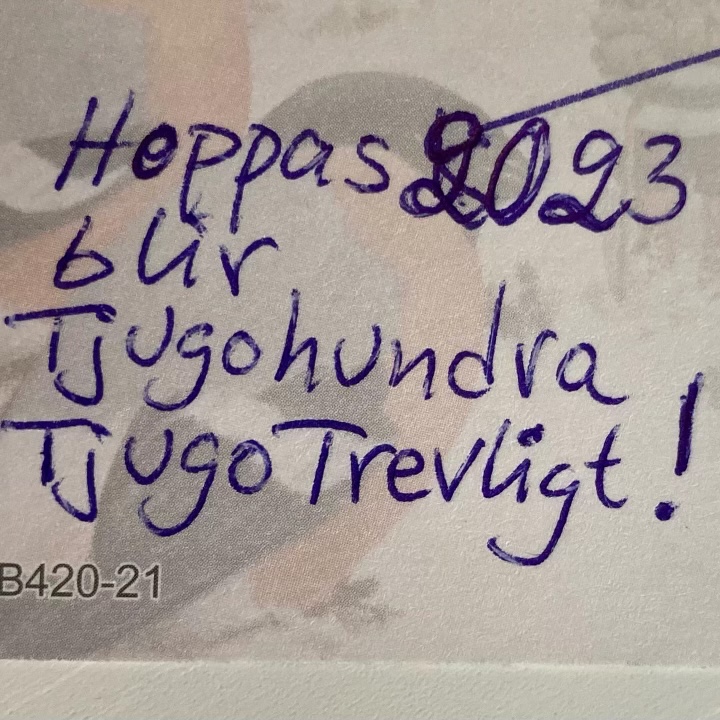 Hoppas 2023
blir
Tjugohundra
TjugoTrevligt!
B420-21